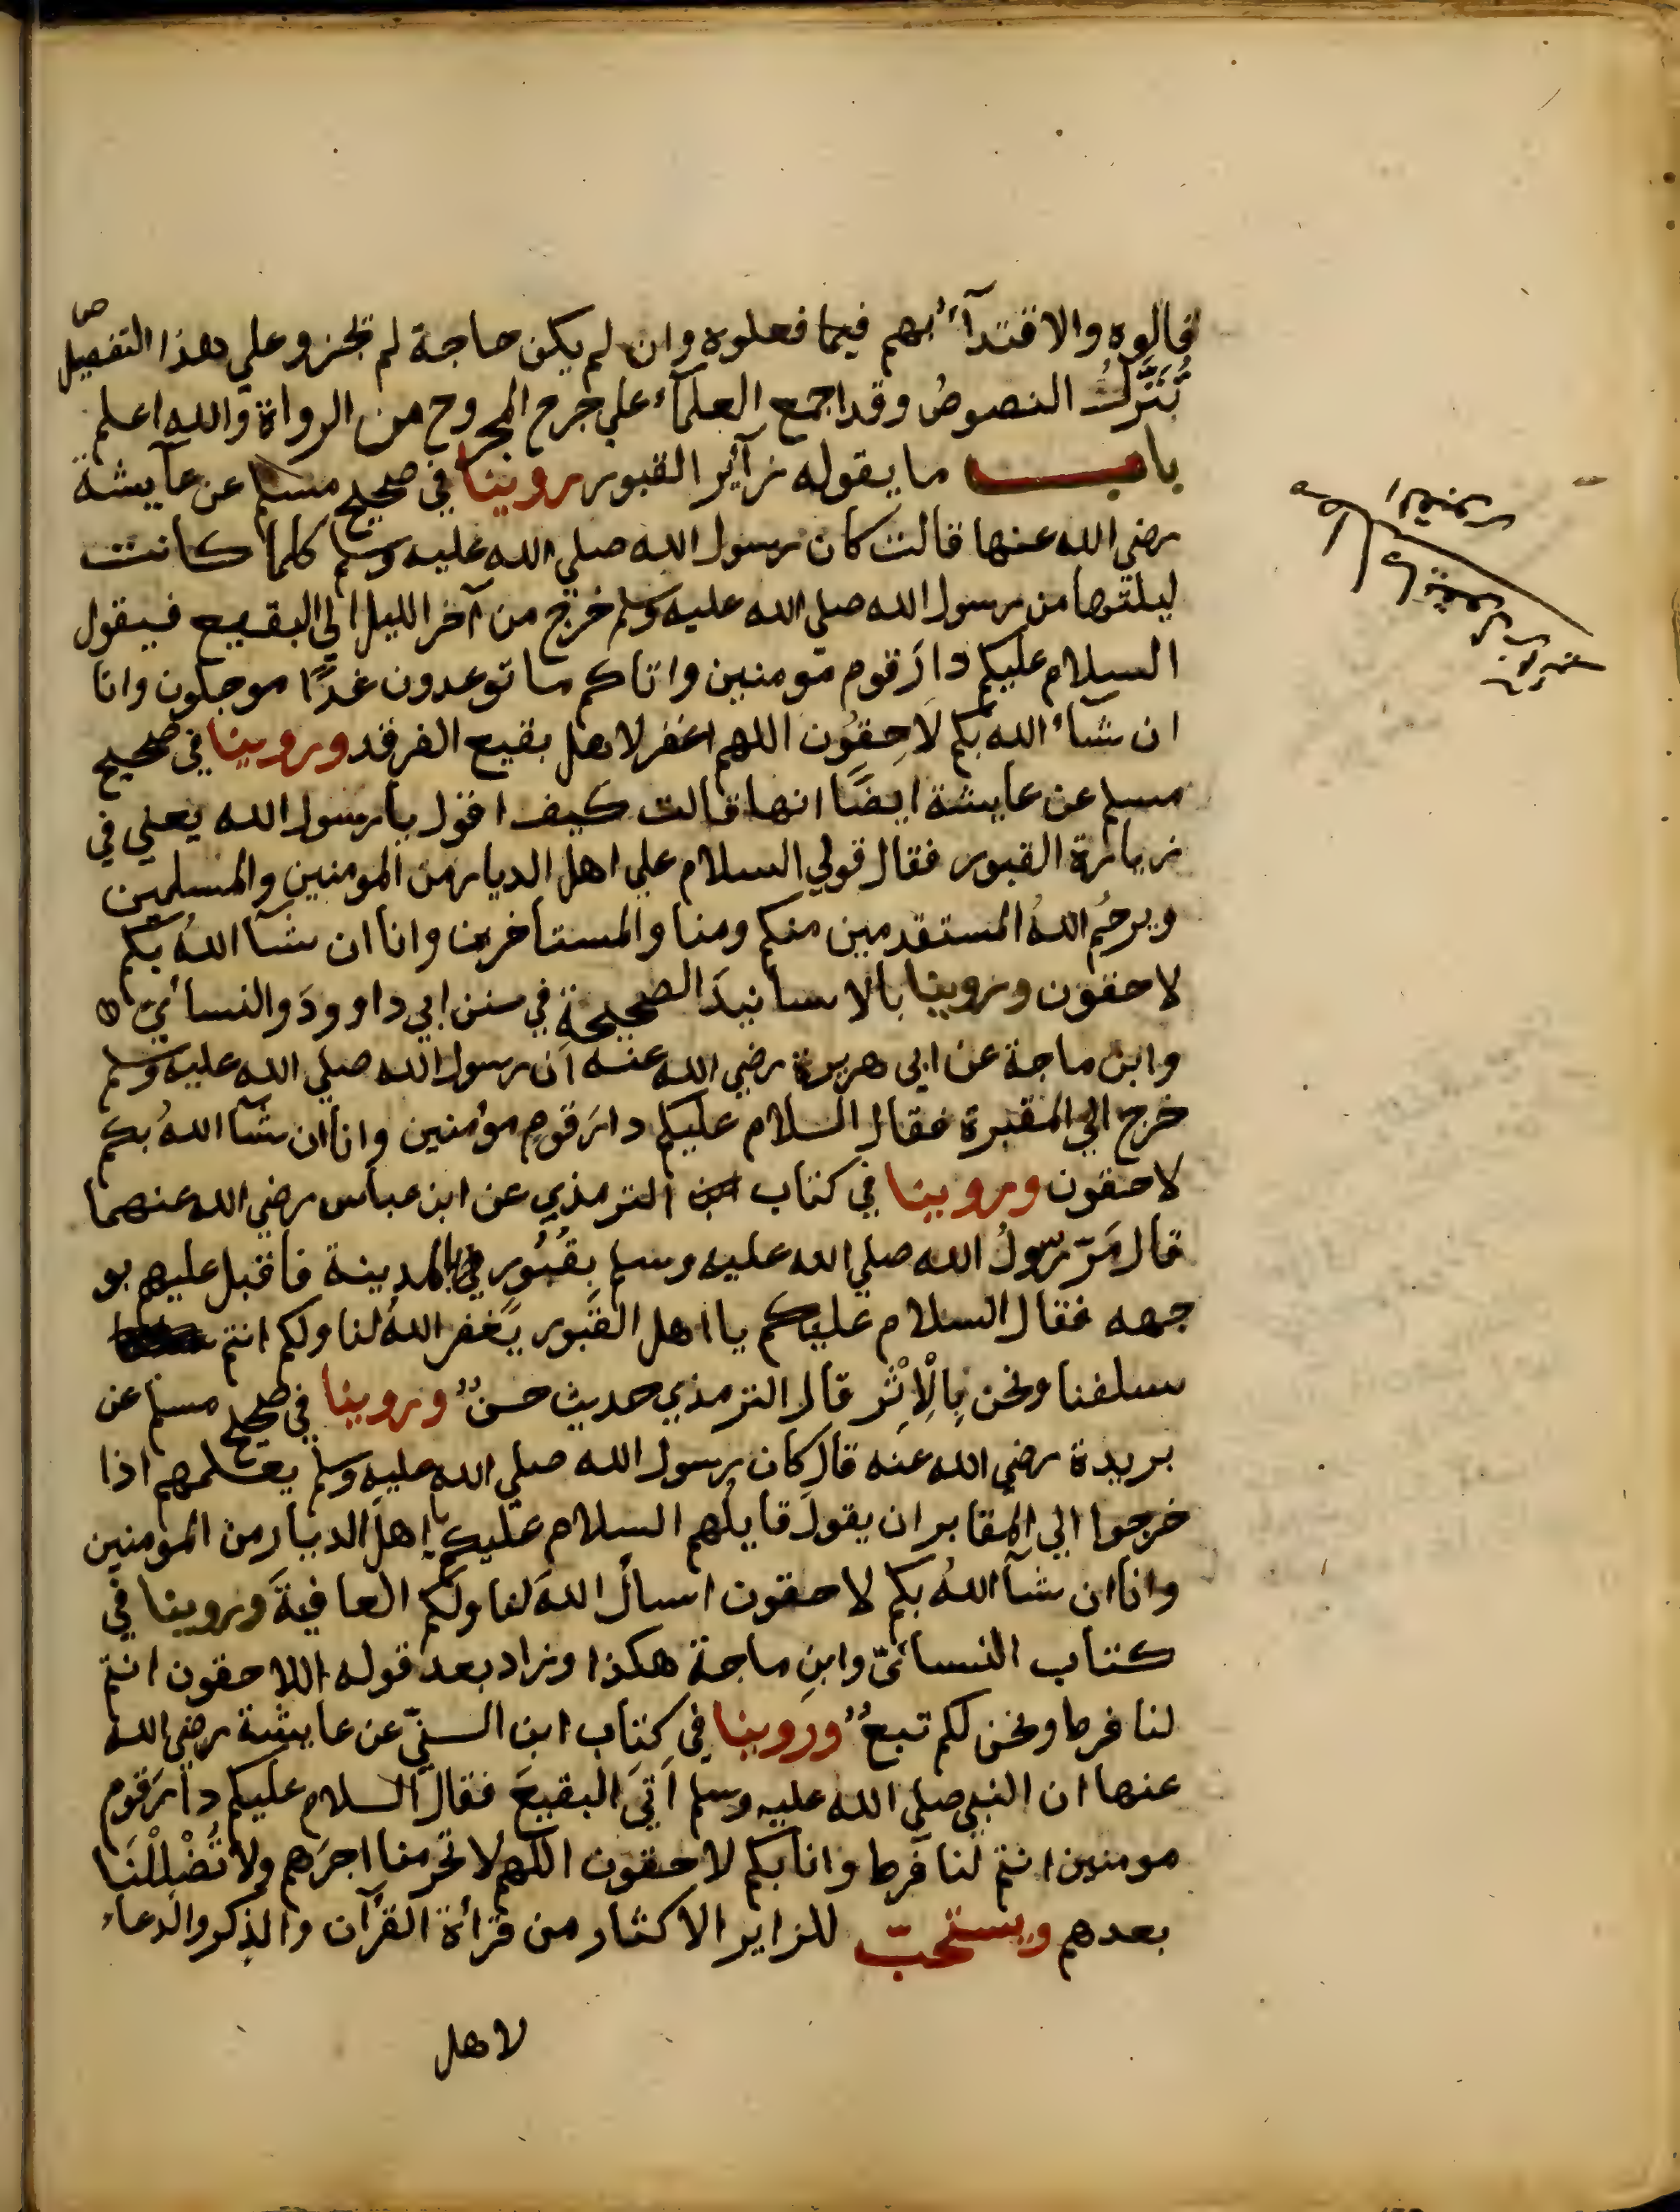 قالوه والاقتدآءُ بهم فيما فعلوه وان لم يكن حاجة لم تجز وعلي هذا التفصيل
تُنَزَّلُ النصوصُ وقد اجمع العلمآء علي جرح المجروح من الرواة والله اعلم
باب ما يقوله زآئر القبور روينا في صحيح مسلم عن عآيشة
رضي الله عنها قالت كان رسول الله صلي الله عليه وسلم كلما كانت
ليلتها من رسول الله صلي الله عليه وسلم خرج من آخر الليل الي البقيع فيقول
السلام عليكم دارَ قوم مومنين واتاكم ما توعدون غدًا موجلون وانا
ان شآء الله بكم لَاحِقُون اللهم اغفر لاهل بقيع الغرقد وروينا في صحيح
مسلم عن عايشة ايضًا انها قالت كيف اقول يا رسول الله يعني في
زيارة القبور فقال قولي السلام علي اهل الديار من المومنين والمسلمين
ويرحمُ اللهُ المستقدمين منكم ومنا والمستاخرين وانا ان شآ اللهُ بكم
لاحقون وروينا بالاسانيدَ الصحيحة في سنن ابي داوودَ والنسائيّ
وابن ماجة عن ابي هريرة رضي الله عنه ان رسول الله صلي الله عليه وسلم
خرج الي المقبرة فقال السلام عليكم دارَ قوم مؤمنين وانا ان شآ اللهُ بكم
لاحقون وروينا في كتاب الترمذي عن ابن عباس رضي الله عنهما
قال مَرّ رسولُ الله صلي الله عليه وسلم بقُبُور بالمدينة فاقبل عليهم بو
جهه فقال السلام عليكم يا اهل القبور يَغفر اللهُ لنا ولكم انتم
سلفنا ونحن بِالْاِثْرِ قال الترمذي حديث حسنٌ وروينا في صحيح مسلم عن
بريدة رضي الله عنه قال كان رسول الله صلي الله عليه وسلم يعلمهم اذا
خرجوا الي المقابر ان يقولَ قايلُهم السلام عليكم يا اهلَ الديار من المومنين
وانا ان شآ اللهُ بكم لاحقون اسألُ اللهَ لنا ولكم العافيةَ وروينا في
كتاب النسائيّ وابنِ ماجة هكذا وزاد بعد قوله اللاحقون انتم
لنا فرط ونحن لكم تبعٌ وروينا في كتاب ابن السنيّ عن عايشة رضي الله
عنها ان النبي صلي الله عليه وسلم اَتيَ البقيعَ فقال السلام عليكم دارَ قوم
مومنين انتم لنا فرط وانا بكم لاحقون اللهم لا تحرمنا اجرَهم ولا تُضْلِلْنَا
بعدهم ويستحبّ للزاير الاكثار من قرأة القرآن والذكر والدعاء
لاهل